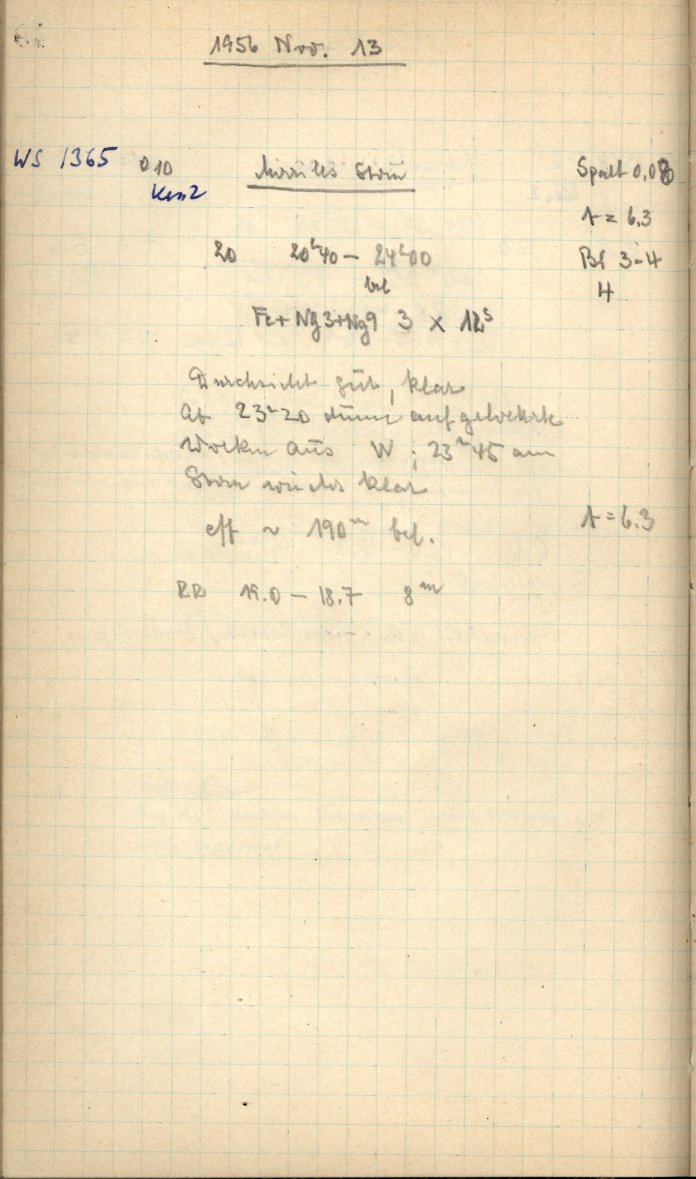 1956 Nov. 13
WS 1365 010 Stern Spalt 0,08
Kas2
t = 6.3
20 20h40 – 24h00 Bl 3-4
bel 4
Fe + Ng3+Ng9 3 x 12s
Durchsicht gut, klar
ab 23h20 dünne aufgelockerte
Wolken aus W; 23h45 am
Stern wieder klar
eff ~ 190m bel. t = 6.3
RR 19.0 – 18.7 8m